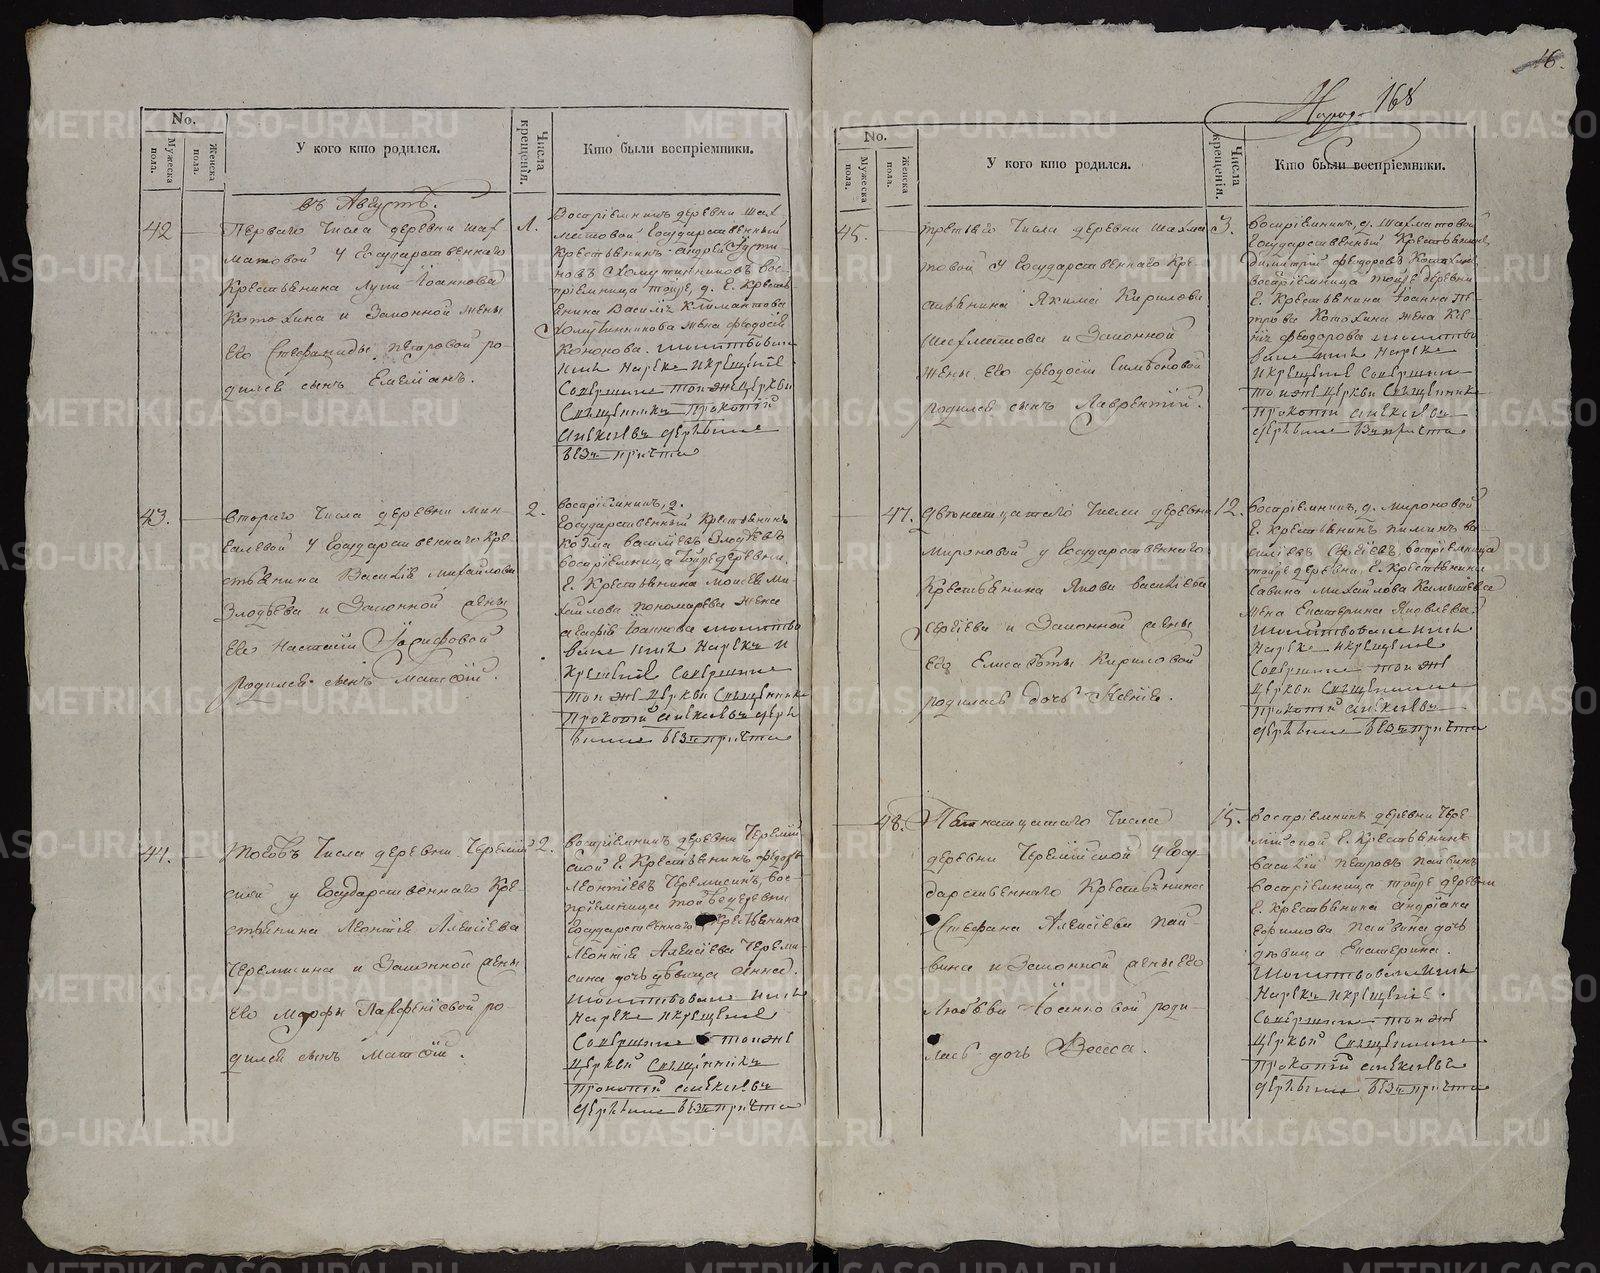 No.
Мужеска пола.
Женска пола.
У кого кто родился.
Числа крещенія.
Кто были воспріемники.
въ Августѣ.
42
Перваго Числа деревни Шах
матовой у Государственнаго
Крестьянина Лупы Іоаннова
Котохина и Законной жены
его Стефаниды Петровой ро-
дился сынъ Емеліанъ.
1.
Воспріемникъ деревни Шах
матовой Государственный
Крестьянинъ Андрей
воспріемница тояже д. Г. Кресть
янина Василія Климантова
жена Феодосія
Кононова. молитвовалъ
имя Нареке и крещеніе
Совершилъ тояже церкви
Священникъ Прокопій
Алексѣевъ
безъ причта
43.
Втораго Числа деревни Мин-
галевой у Государственнаго Кре-
стьянина Василія Михайлова
Злодѣева и Законной жены
его Настасіи Іосифовой
родился сынъ Матѳій.
2.
воспріемникъ, д.
Государственный Крестьянинъ
Козма Василіевъ Злодѣевъ
воспріемница тояже деревни
Г. Крестьянина Моисея Ми-
хайлова Пономарева жена
Агафія Іоаннова молитво
валъ имя Нареклъ и
Крещеніе Совершилъ
тоя же Церкви Священникъ
Прокопій Алексѣевъ
безъ причта
44.
Тогожъ Числа деревни Черемій
ской у Государственнаго Кре-
стьянина Леонтія Алексіева
Черемисина и Законной жены
его Марфы Парфеніевой ро
дился сынъ Матѳій.
2.
воспріемникъ деревни Черемій
ской Г. Крестьянинъ Федоръ
Леонтіевъ Черемисинъ, вос-
пріемница той же деревни
Государственнаго Крестьянина
Леонтія Алексіева Череми-
сина дочь дѣвица Анна.
Молитвовалъ имя
Нареке и крещеніе
Совершилъ тояже
Церкви Священникъ
Прокопій Алексѣевъ
безъ причта
16.
168
No.
Мужеска пола.
Женска пола.
У кого кто родился.
Числа крещенія.
Кто были воспріемники.
45.
третьяго Числа деревни Шахма
товой у Государственнаго Кре-
стьянина Якима Кирилова
Шахматова и Законной
жены его Феодосіи Симеоновой
родился сынъ Лаврентій.
3.
воспріемникъ, д. Шахматовой
Государственный Крестьянинъ
Димитрій Феодоровъ
воспріемница тояже деревни
Г. Крестьянина Іоанна Пе-
трова Котохина жена Ксе-
нія Феодорова молитво
валъ имя Нареке
и крещеніе Совершилъ
тояже церкви Священникъ
Прокопій Алексѣевъ
безъ причта
47.
Двенатцатаго Числа деревни
Мироновой у Государственнаго
Крестьянина Якова Василіева
Сергіева и Законной жены
его Елисаветы Кириловой
родилась дочь Ксенія.
12.
воспріемникъ, д. Мироновой
Г. Крестьянинъ Пиминъ Ва-
силіевъ Сергіевъ, воспріемница
тояже деревни, Г. Крестьянина
Савина Михайлова
жена Екатерина Яковлева.
Молитвовалъ имя
Нареке и крещеніе
Совершилъ тояже
Церкви Священникъ
Прокопій Алексѣевъ
безъ причта
48.
Пятнатцатаго Числа
деревни Череміиской у Госу-
дарственнаго Крестьянина
Стефана Алексіева Пай-
вина и Законной жены его
Любови Іоанновой роди-
лась дочь Васса.
15.
воспріемникъ деревни Чере
міиской Г. Крестьянинъ
Василій Петровъ Паивинъ
воспріемница тояже деревни
Г. Крестьянина Андріана
Ефимова Пайвина дочь
дѣвица Екатерина.
Молитвовалъ имя
Нареклъ и крещеніе.
Совершилъ тояже
Церкви Священникъ
Прокопій Алексѣевъ
безъ причта
METRIKI.GASO-URAL.RU